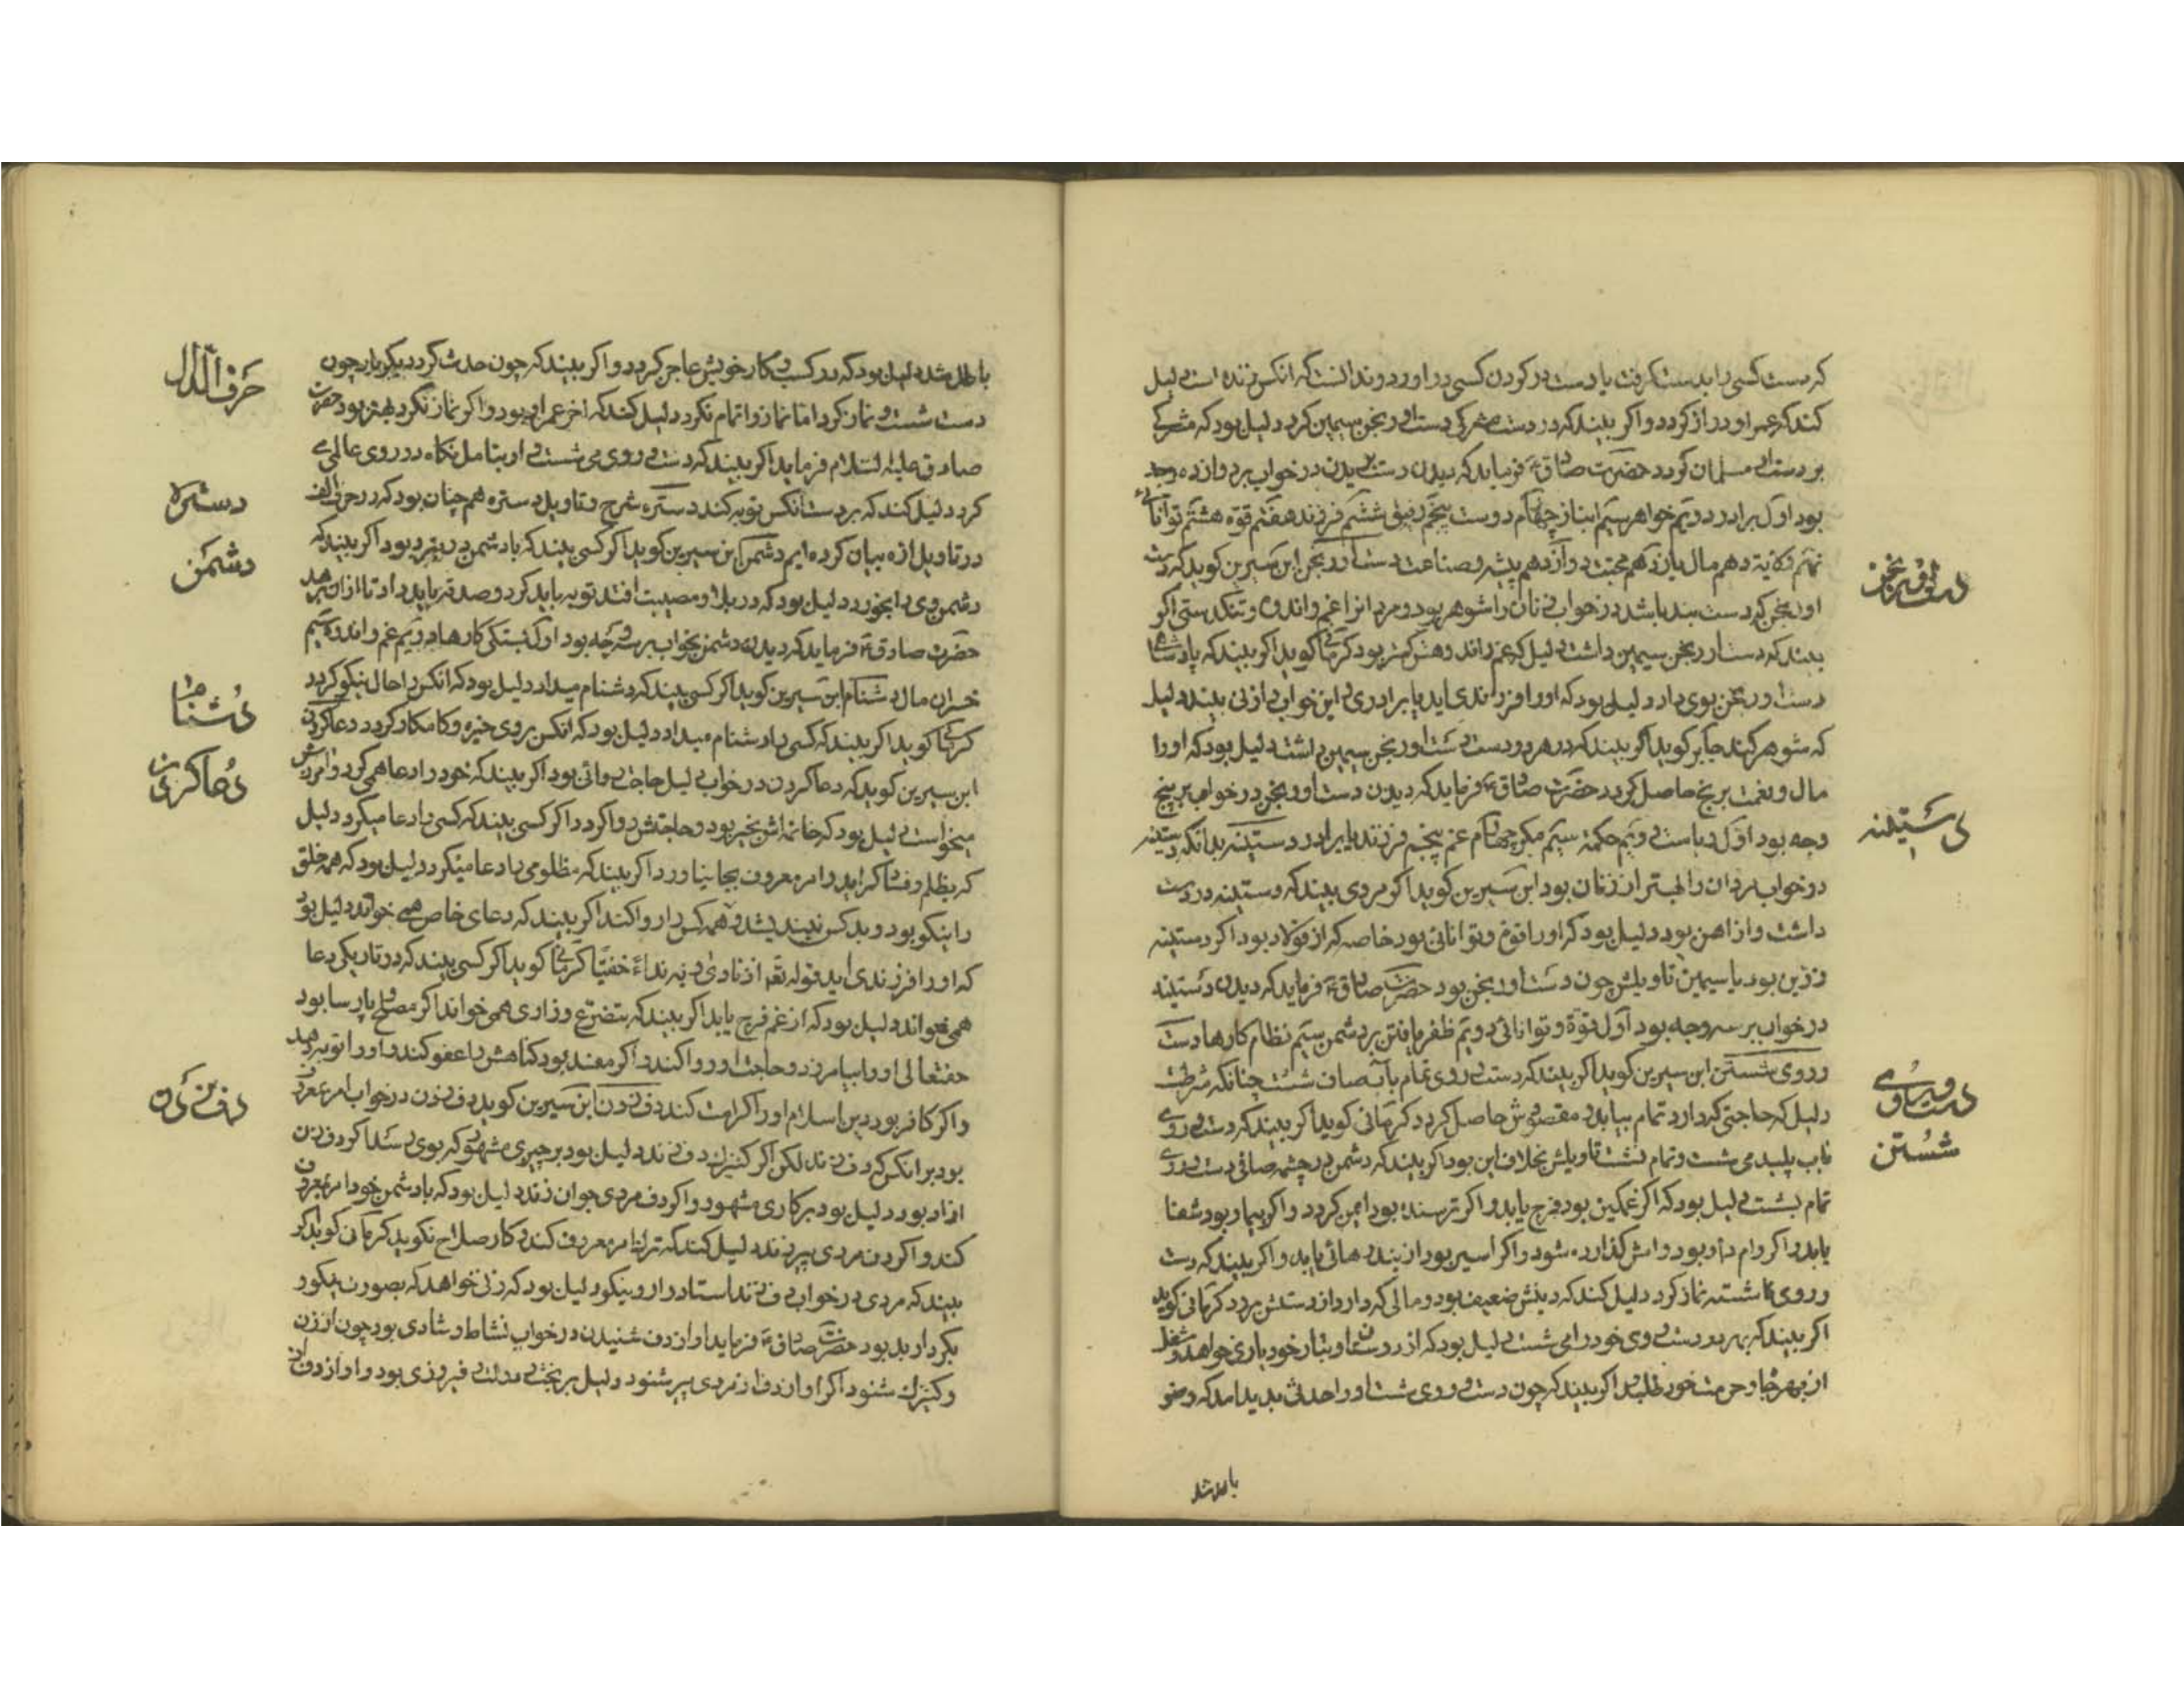 که دست کسی را بدست کرفت یا دست در کردن کسی دراورد و ندانست که انکس زنده است دلیل
کند که عمر او دراز کردد و اکر بیند که در دست مشرکی دست اورنجن سیمین کرد دلیل بود که مشرکی
بر دست او مسلمان کردد حضرت صادق فرماید که دیدن دست در خواب بر دوازده وجه
بود اول برادر دویم خواهر سیم انباز چهارم دوست پنجم رفیق ششم فرزند هفتم قوه هشتم توانائی
نهم ولایة دهم مال یازدهم محبت دوازدهم پیشه و صناعت دست اورنجن ابن سیرین کوید که دست
اورنجن که دست بند باشد در خواب زنان را شوهر بود و مردانرا غم و اندوه و تنکدستی اکر
بیند که دست اورنجن سیمین داشت دلیل که غم و اندوهش کمتر بود کرمانی کوید اکر بیند که پادشاه
دست اورنجن بوی داد دلیل بود که او را فرزندی اید یا برادری و این خواب از زنی بیند دلیل
که شوهر کند جابر کوید اکر بیند که در هر دو دست دست اورنجن سیمین داشت دلیل بود که او را
مال و نعمت برنج حاصل کردد حضرت صادق فرماید که دیدن دست اورنجن در خواب بر پنج
وجه بود اول ریاست دویم حکمة سیم مکر چهارم غم پنجم فرزند یا برادر دستینه بدانکه دستینه
در خواب مردان را بهتر از زنان بود ابن سیرین کوید اکر مردی بیند که دستینه در دست
داشت و از اهن بود دلیل بود که او را قوة و توانائی بود خاصه که از فولاد بود اکر دستینه
زرین بود یا سیمین تاویلش چون دست اورنجن بود حضرت صادق فرماید که دیدن دستینه
در خواب بر سه وجه بود اول قوة و توانائی دویم ظفر یافتن بر دشمن سیم نظام کارها دست
و روی شستن ابن سیرین کوید اکر بیند که دست و روی تمام بآب صاف شست چنانکه شرطست
دلیل که حاجتی که دارد تمام بیابد و مقصودش حاصل کردد کرمانی کوید اکر بیند که دست و روی
بآب پلید می شست و تمام نشست تاویلش بخلاف این بود اکر بیند که دشمن در چشمه صافی دست و روی
تمام بشست دلیل بود که اکر غمکین بود فرج یابد و اکر ترسنده بود ایمن کردد و اکر بیمار بود شفا
یابد و اکر وام دار بود وامش کذارده شود و اکر اسیر بود از بند رهائی یابد و اکر بیند که دست
و روی ناشسته نماز کرد دلیل کند که دینش ضعیف بود و مالی که دارد از دستش برود کرمانی کوید
اکر بیند که بهر دو دست روی خود را می شست دلیل بود که از دوستان و تبار خود یاری خواهد و شغل
از بهر جاه و حرمت خود طلبد اکر بیند که چون دست و روی شست او را حدث پدید امد که وضو
دست اورنجن
دستینه
دست و روی
شستن
باطل شد
باطل شد دلیل بود که در کسب و کار خویش عاجز کردد و اکر بیند که چون حدث کرد دیکر بار چون
دست شست و نماز کرد اما نماز را تمام نکرد دلیل کند که اخر عمر او بود و اکر نماز نکرد بهتر بود حضرت
صادق علیه السلام فرماید اکر بیند که دست و روی می شست و او بتامل نکاه در روی عالمی
کرد دلیل کند که بر دست انکس توبه کند دستره شرح و تاویل دستره هم چنان بود که در حرف الف
در تاویل ازه بیان کرده ایم دشمن ابن سیرین کوید اکر کسی بیند که با دشمن در نبرد بود اکر بیند که
دشمن وی را بخورد دلیل بود که در بلا و مصیبت افتد توبه باید کرد و صدقه باید داد تا از ان برهد
حضرت صادق فرماید که دیدن دشمن بخواب بر سه وجه بود اول بستکی کارها دویم غم و اندوه سیم
خسران مال دشنام ابن سیرین کوید اکر کسی بیند که دشنام میداد دلیل بود که انکس را حال نیکو کردد
کرمانی کوید اکر بیند که کسی را دشنام میداد دلیل بود که انکس بر وی خیره و کامکار کردد دعا کردن
ابن سیرین کوید که دعا کردن در خواب دلیل حاجت روائی بود اکر بیند که خود را دعا همی کرد و امرزش
میخواست دلیل بود که خاتمه اش بخیر بود و حاجتش روا کردد اکر کسی بیند که کسی را دعا میکرد دلیل
که بظلم و فساد کراید و امر معروف بجا نیاورد اکر بیند که مظلومی را دعا میکرد دلیل بود که همه خلق
را نیکو بود و بد کس نیندیشد و همه کس را روا کند اکر بیند که دعای خاص همی خواند دلیل بود
که او را فرزندی اید قوله تعم اذ نادی ربه نداءً خفیّا کرمانی کوید اکر کسی بیند که در تاریکی دعا
همی خواند دلیل بود که از غم فرج یابد اکر بیند که بتضرع و زاری همی خواند اکر مصلح و پارسا بود
حقتعالی او را بیامرزد و حاجت او روا کند و اکر مفسد بود کناهش را عفو کند و او را توبه دهد
و اکر کافر بود دین اسلام او را کرامت کند دف زدن ابن سیرین کوید دف زدن در خواب امر معروف
بود بر انکس که دف زند لکن اکر کنیزک دف زند دلیل بود بر چیزی مشهور که بوی رسد اکر دف زن
ازاد بود دلیل بود بر کاری مشهود و اکر دف مردی جوان زند دلیل بود که با دشمن خود امر معروف
کند و اکر دف مردی پیر زند دلیل کند که ترک امر معروف کند و کار صلاح نکوید کرمانی کوید اکر
بیند که مردی در خواب دف زند استاد وار و نیکو دلیل بود که زنی خواهد که بصورت نیکو و
بکردار بد بود حضرت صادق فرماید اواز دف شنیدن در خواب نشاط و شادی بود چون از زن
و کنیزک شنود اکر اواز دف از مردی پیر شنود دلیل بر بخت و دولت و فیروزی بود و اواز دف از
حرف الدال
دستره
دشمن
دشنام
دعا کردن
دف زدن